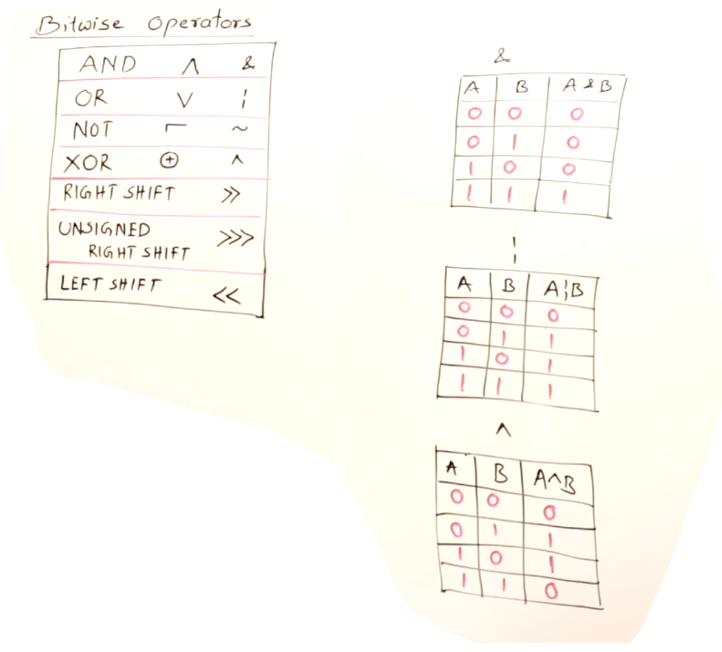 Bitwise Operators
AND ∧ &
OR ∨ ¦
NOT ⌐ ~
XOR ⊕ ^
RIGHT SHIFT >>
UNSIGNED
RIGHT SHIFT >>>
LEFT SHIFT <<
&
A B A & B
0 0 0
0 1 0
1 0 0
1 1 1
¦
A B A¦B
0 0 0
0 1 1
1 0 1
1 1 1
^
A B A^B
0 0 0
0 1 1
1 0 1
1 1 0